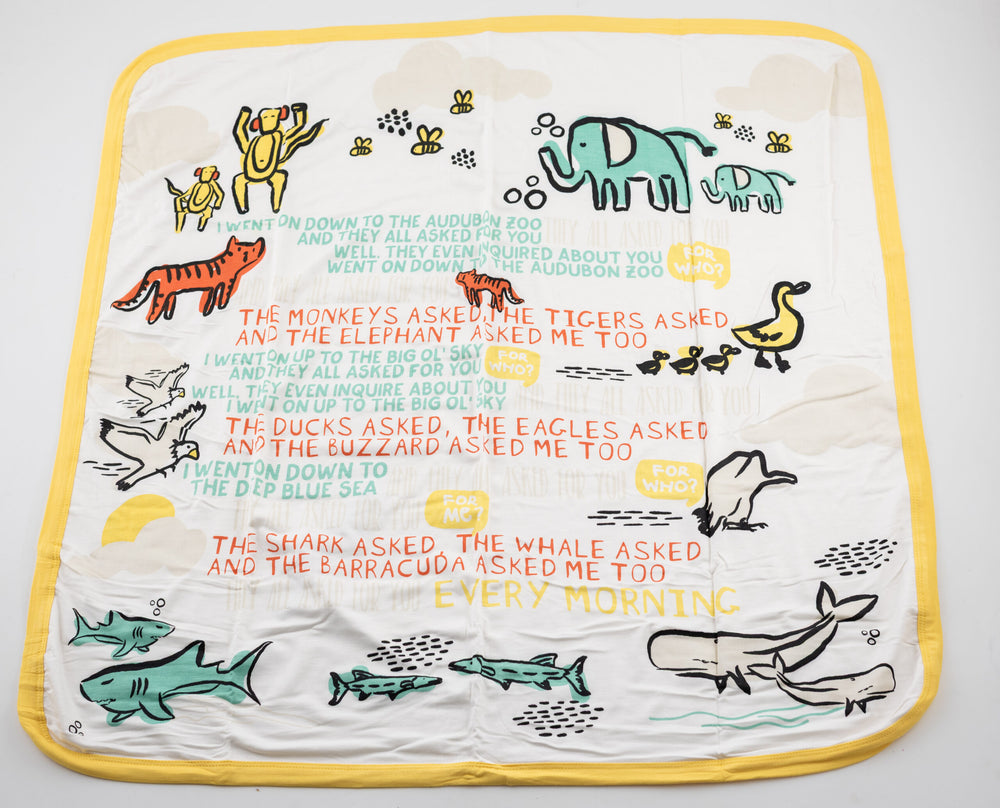 I WENT ON DOWN TO THE AUDUBON ZOO
THEY ALL ASKED FOR YOU
AND THEY ALL ASKED FOR YOU
WELL, THEY EVEN INQUIRED ABOUT YOU
FOR
WHO?
WENT ON DOWN TO THE AUDUBON ZOO
THE MONKEYS ASKED, THE TIGERS ASKED
AND THE ELEPHANT ASKED ME TOO
I WENT ON UP TO THE BIG OL' SKY
AND THEY ALL ASKED FOR YOU
FOR
WHO?
WELL, THEY EVEN INQUIRE ABOUT YOU
I WENT ON UP TO THE BIG OL' SKY
THE DUCKS ASKED, THE EAGLES ASKED
AND THE BUZZARD ASKED ME TOO
I WENT ON DOWN TO
THE DEEP BLUE SEA
THEY ALL ASKED FOR YOU
FOR
WHO?
FOR
ME?
THE SHARK ASKED, THE WHALE ASKED
AND THE BARRACUDA ASKED ME TOO
EVERY MORNING